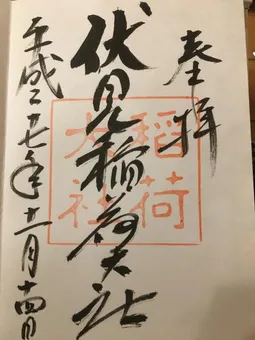 奉拝
伏見稲荷大社
稲荷
大社
平成二十七年十一月十四日